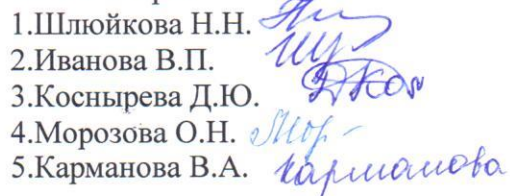 1.Шлюйкова Н.Н.
2.Иванова В.П.
3.Коснырева Д.Ю.
4.Морозова О.Н. Мор-
5.Карманова В.А. Карманова